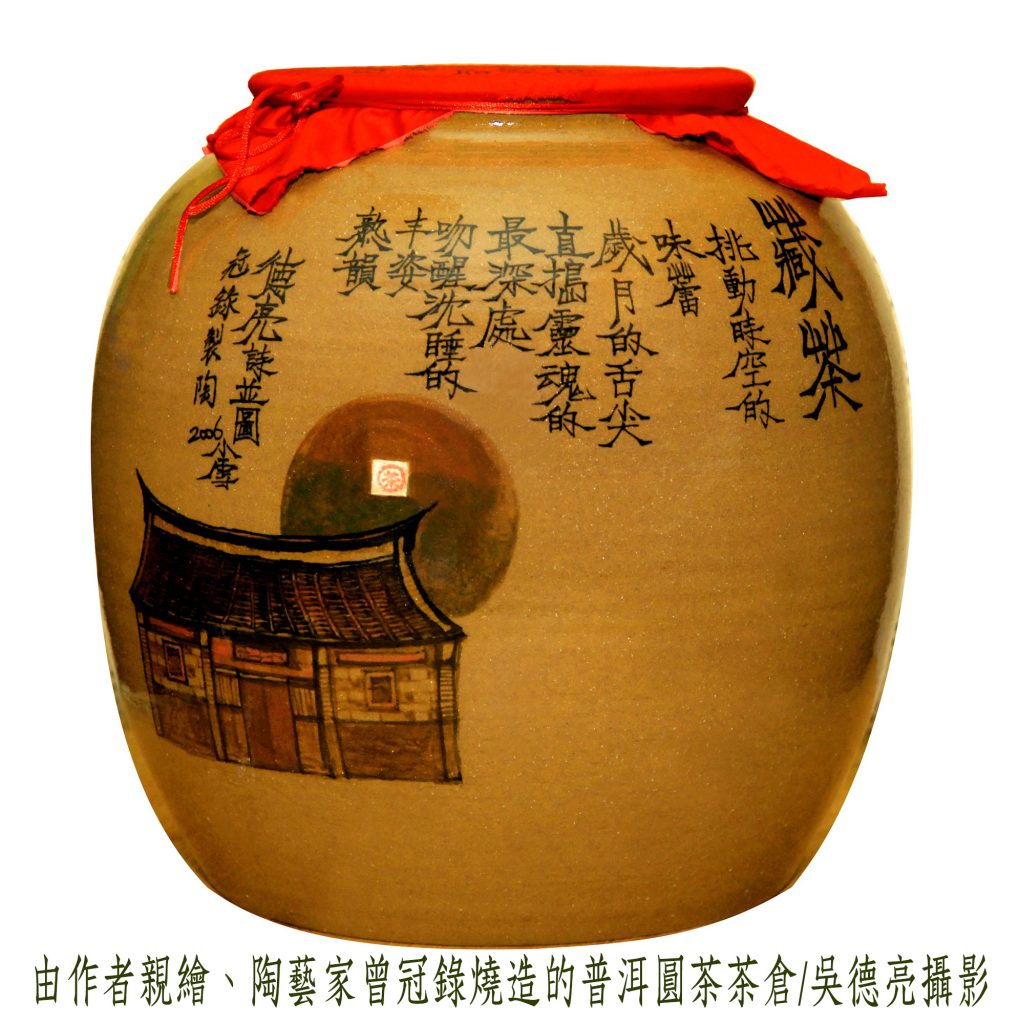 藏茶
挑動時空的
味蕾
歲月的舌尖
直搗靈魂的
最深處
吻醒沈睡的
丰姿
熟韻
德亮詩並圖
冠錄製陶 2006小雪
茶
由作者親繪、陶藝家曾冠錄燒造的普洱圓茶茶倉/吳德亮攝影